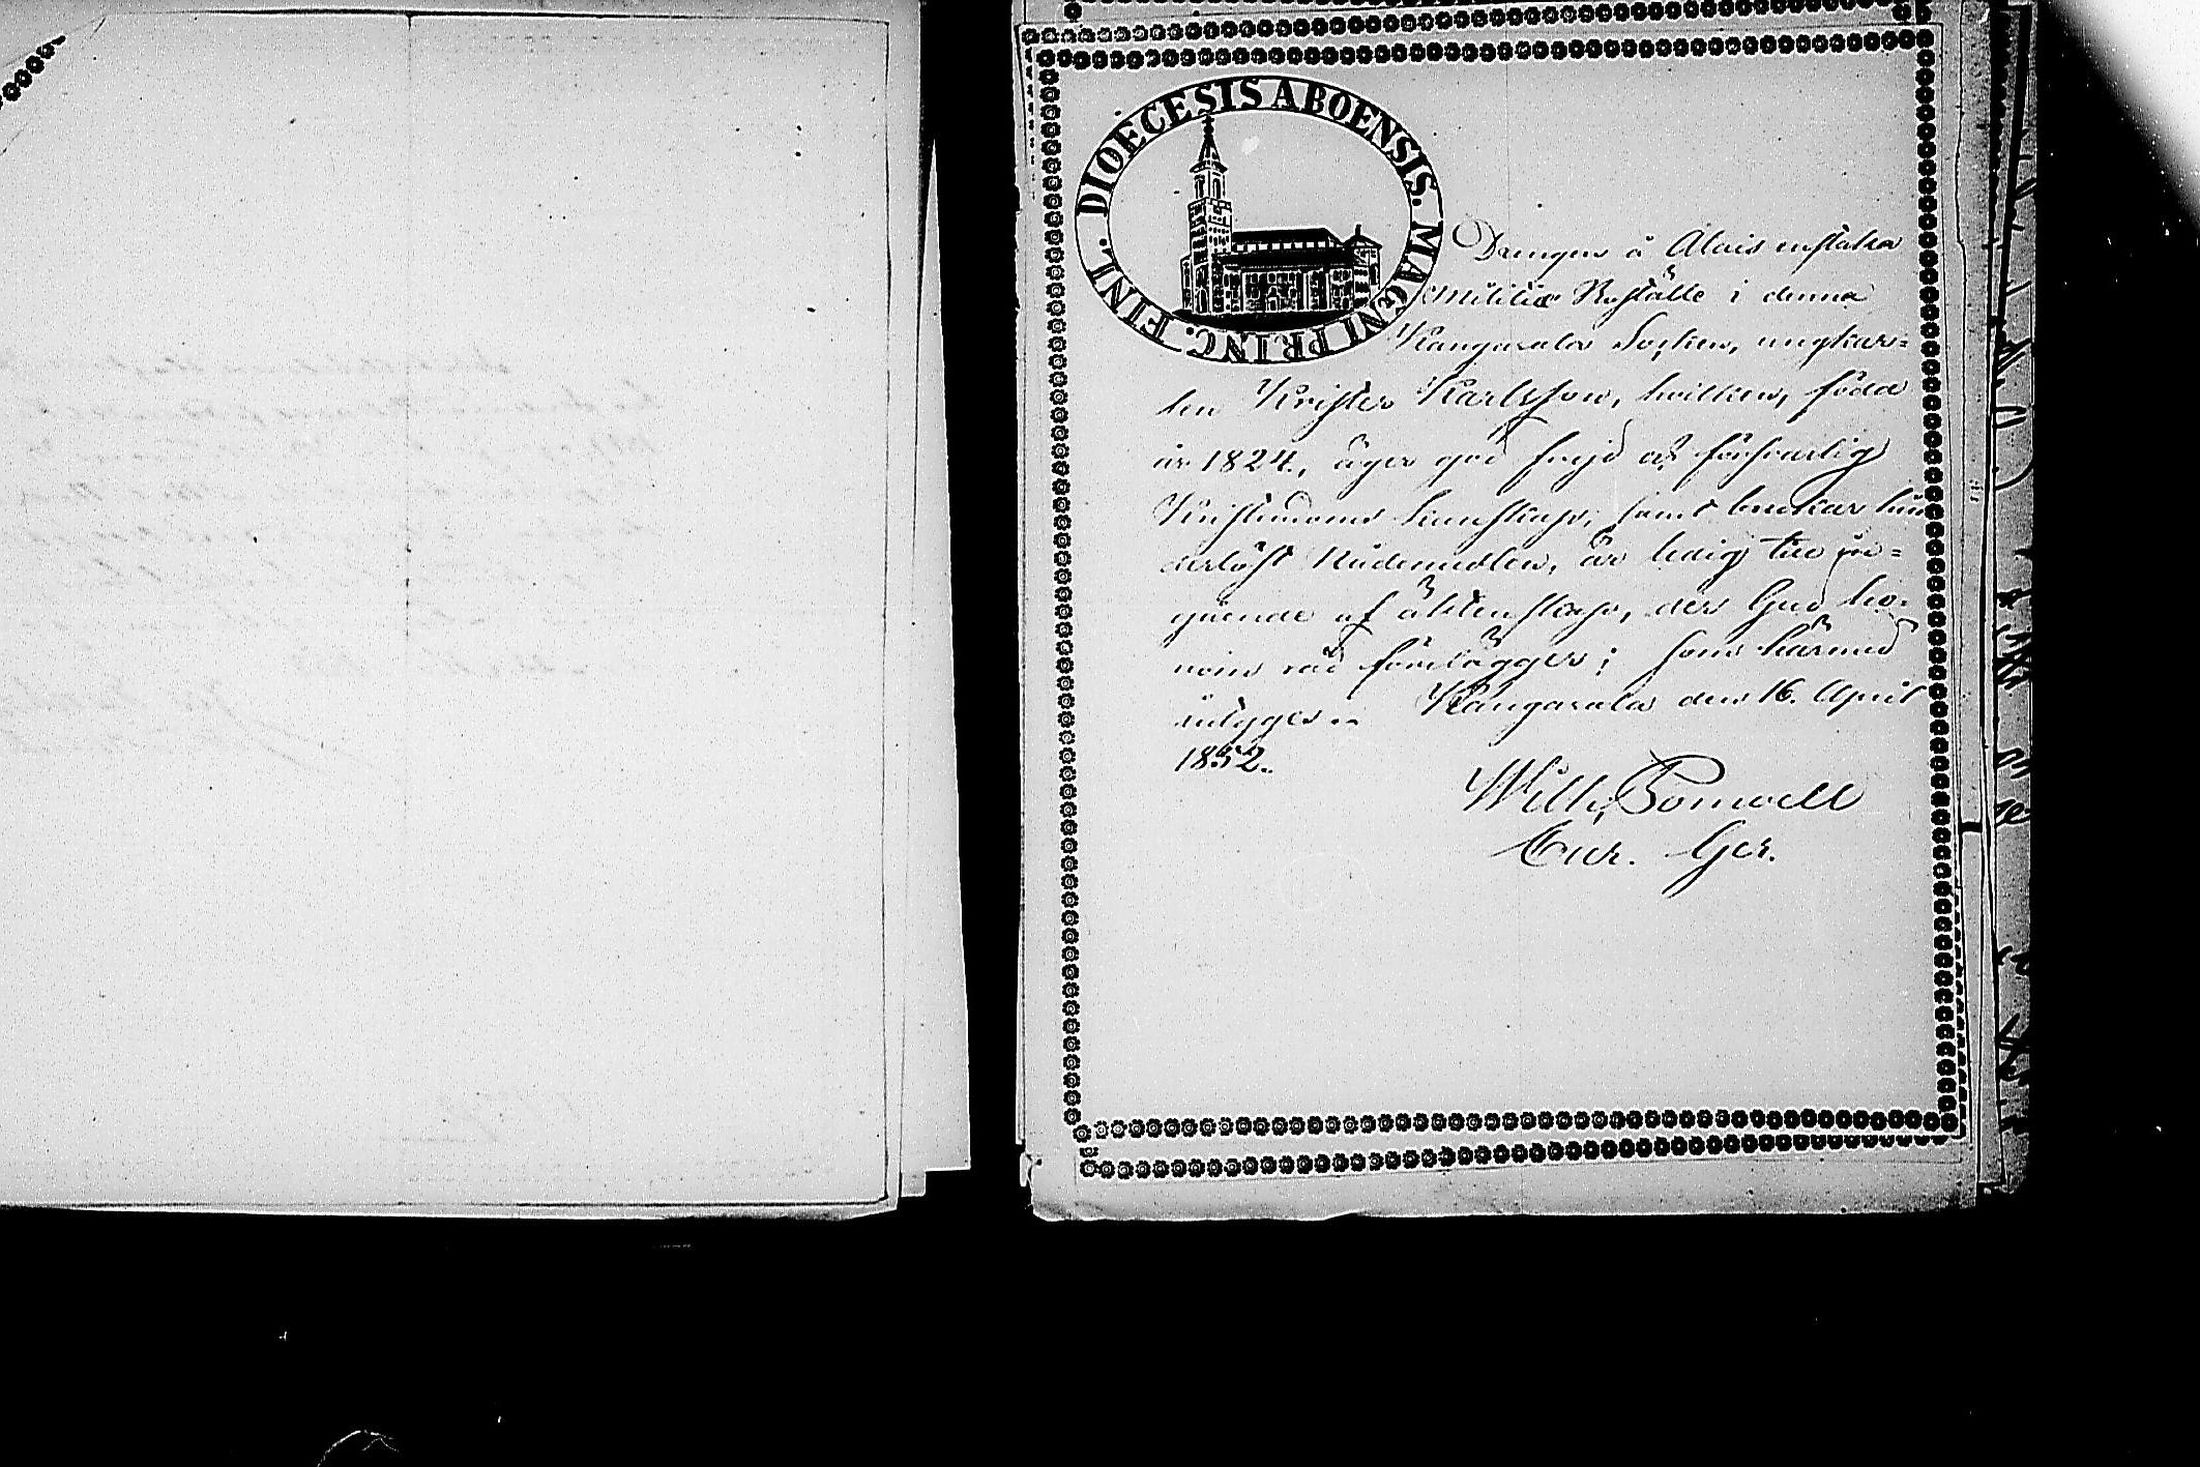 DIOECESIS ABOENSIS. MAGNI PRINC. FINL.
Drengen å Alais enstaka
Militiæ Boställe i denna
Kangasala Socken, ungkar=
len Krister Karlsson, hvilken, född
år 1824, äger god frejd och försvarlig
Kristendoms kunskap, samt brukar hin
derlöst Nådemedlen, är ledig till in=
gående af äktenskap, der Gud ho-
nom råd förelägger; som härmed
intygas. Kangasala den 16. April
1852.
Wilh. Pomoell
Cur. Ger.